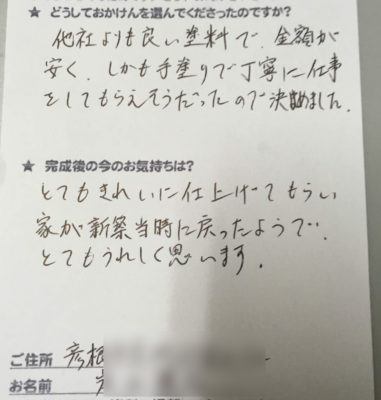 ★ どうしておかけんを選んでくださったのですか?
他社よりも良い塗料で、金額が
安く、しかも手塗りで丁寧に仕事
をしてもらえそうだったので決めました。
★ 完成後の今のお気持ちは?
とてもきれいに仕上げてもらい
家が新築当時に戻ったようで、
とてもうれしく思います。
ご住所 彦根
お名前